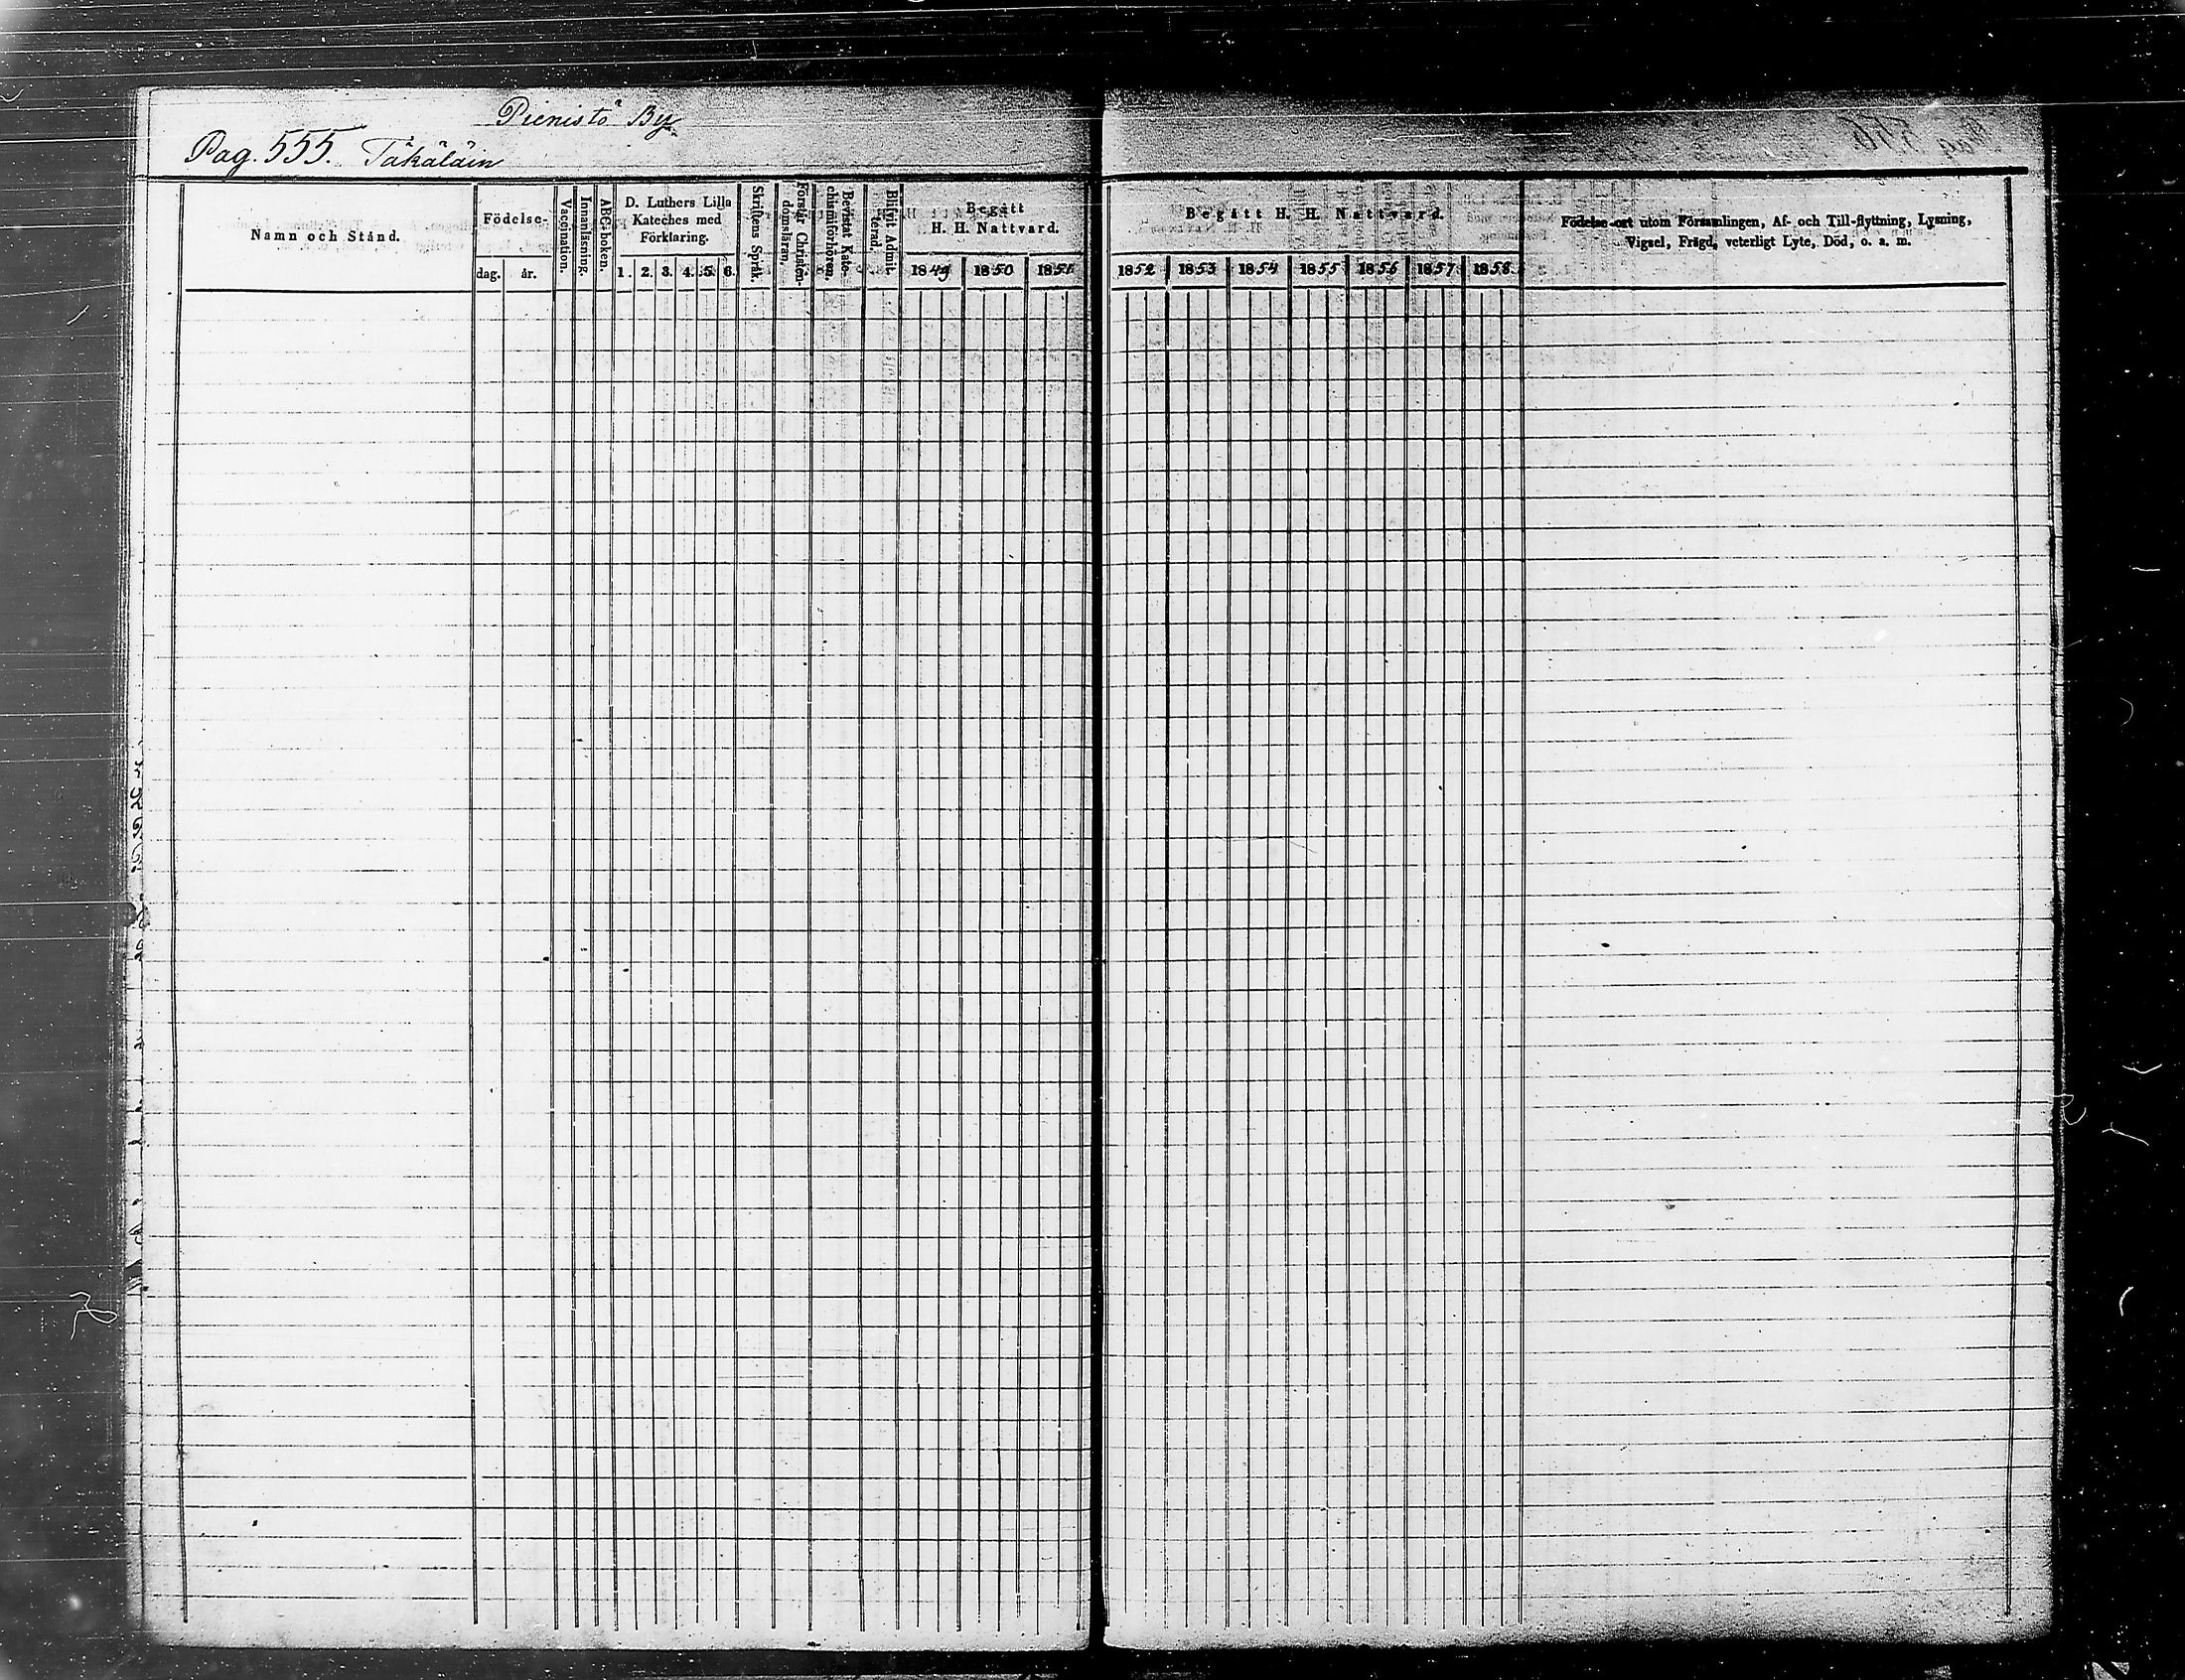 Pienistö By
Pag. 555. Täkäläin
Namn och Stånd.
Födelse-
dag. år.
Vaccination.
Innanläsning.
ABC-boken.
D. Luthers Lilla
Kateches med
Förklaring.
1. 2. 3. 4. 5. 6.
Skriftens Språk.
Förstår Christen-
domsläran.
Bevistat Kate-
chismiförhören.
Blifvit Admit-
terad.
Begått
H. H. Nattvard.
1849 1850 1851
Begått H. H. Nattvard.
1852 1853 1854 1855 1856 1857 1858
Födelse-ort utom Församlingen, Af- och Till-flyttning, Lysning,
Vigsel, Frägd, veterligt Lyte, Död, o. s. m.